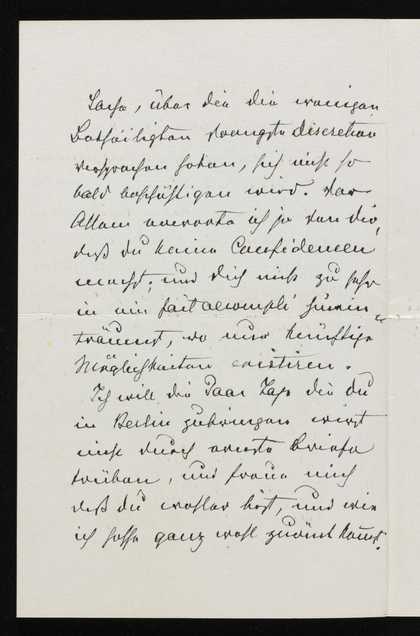 Sache, über die die wenigen
Betheiligten strengste Discretion
versprochen haben, sich nicht so
bald beschäftigen wird. Vor
Allem erwarte ich ja von dir,
daß du keine Confidencen
machst, und dich nicht zu sehr
in ein fait accompli hinein-
träumst, wo nur künftige
Möglichkeiten existiren.
Ich will die Paar Tage die du
in Berlin zubringen wirst
nicht durch ernste Briefe
trüben, und freue mich
daß du wohler bist, und wie
ich hoffe ganz wohl zurück kömst.